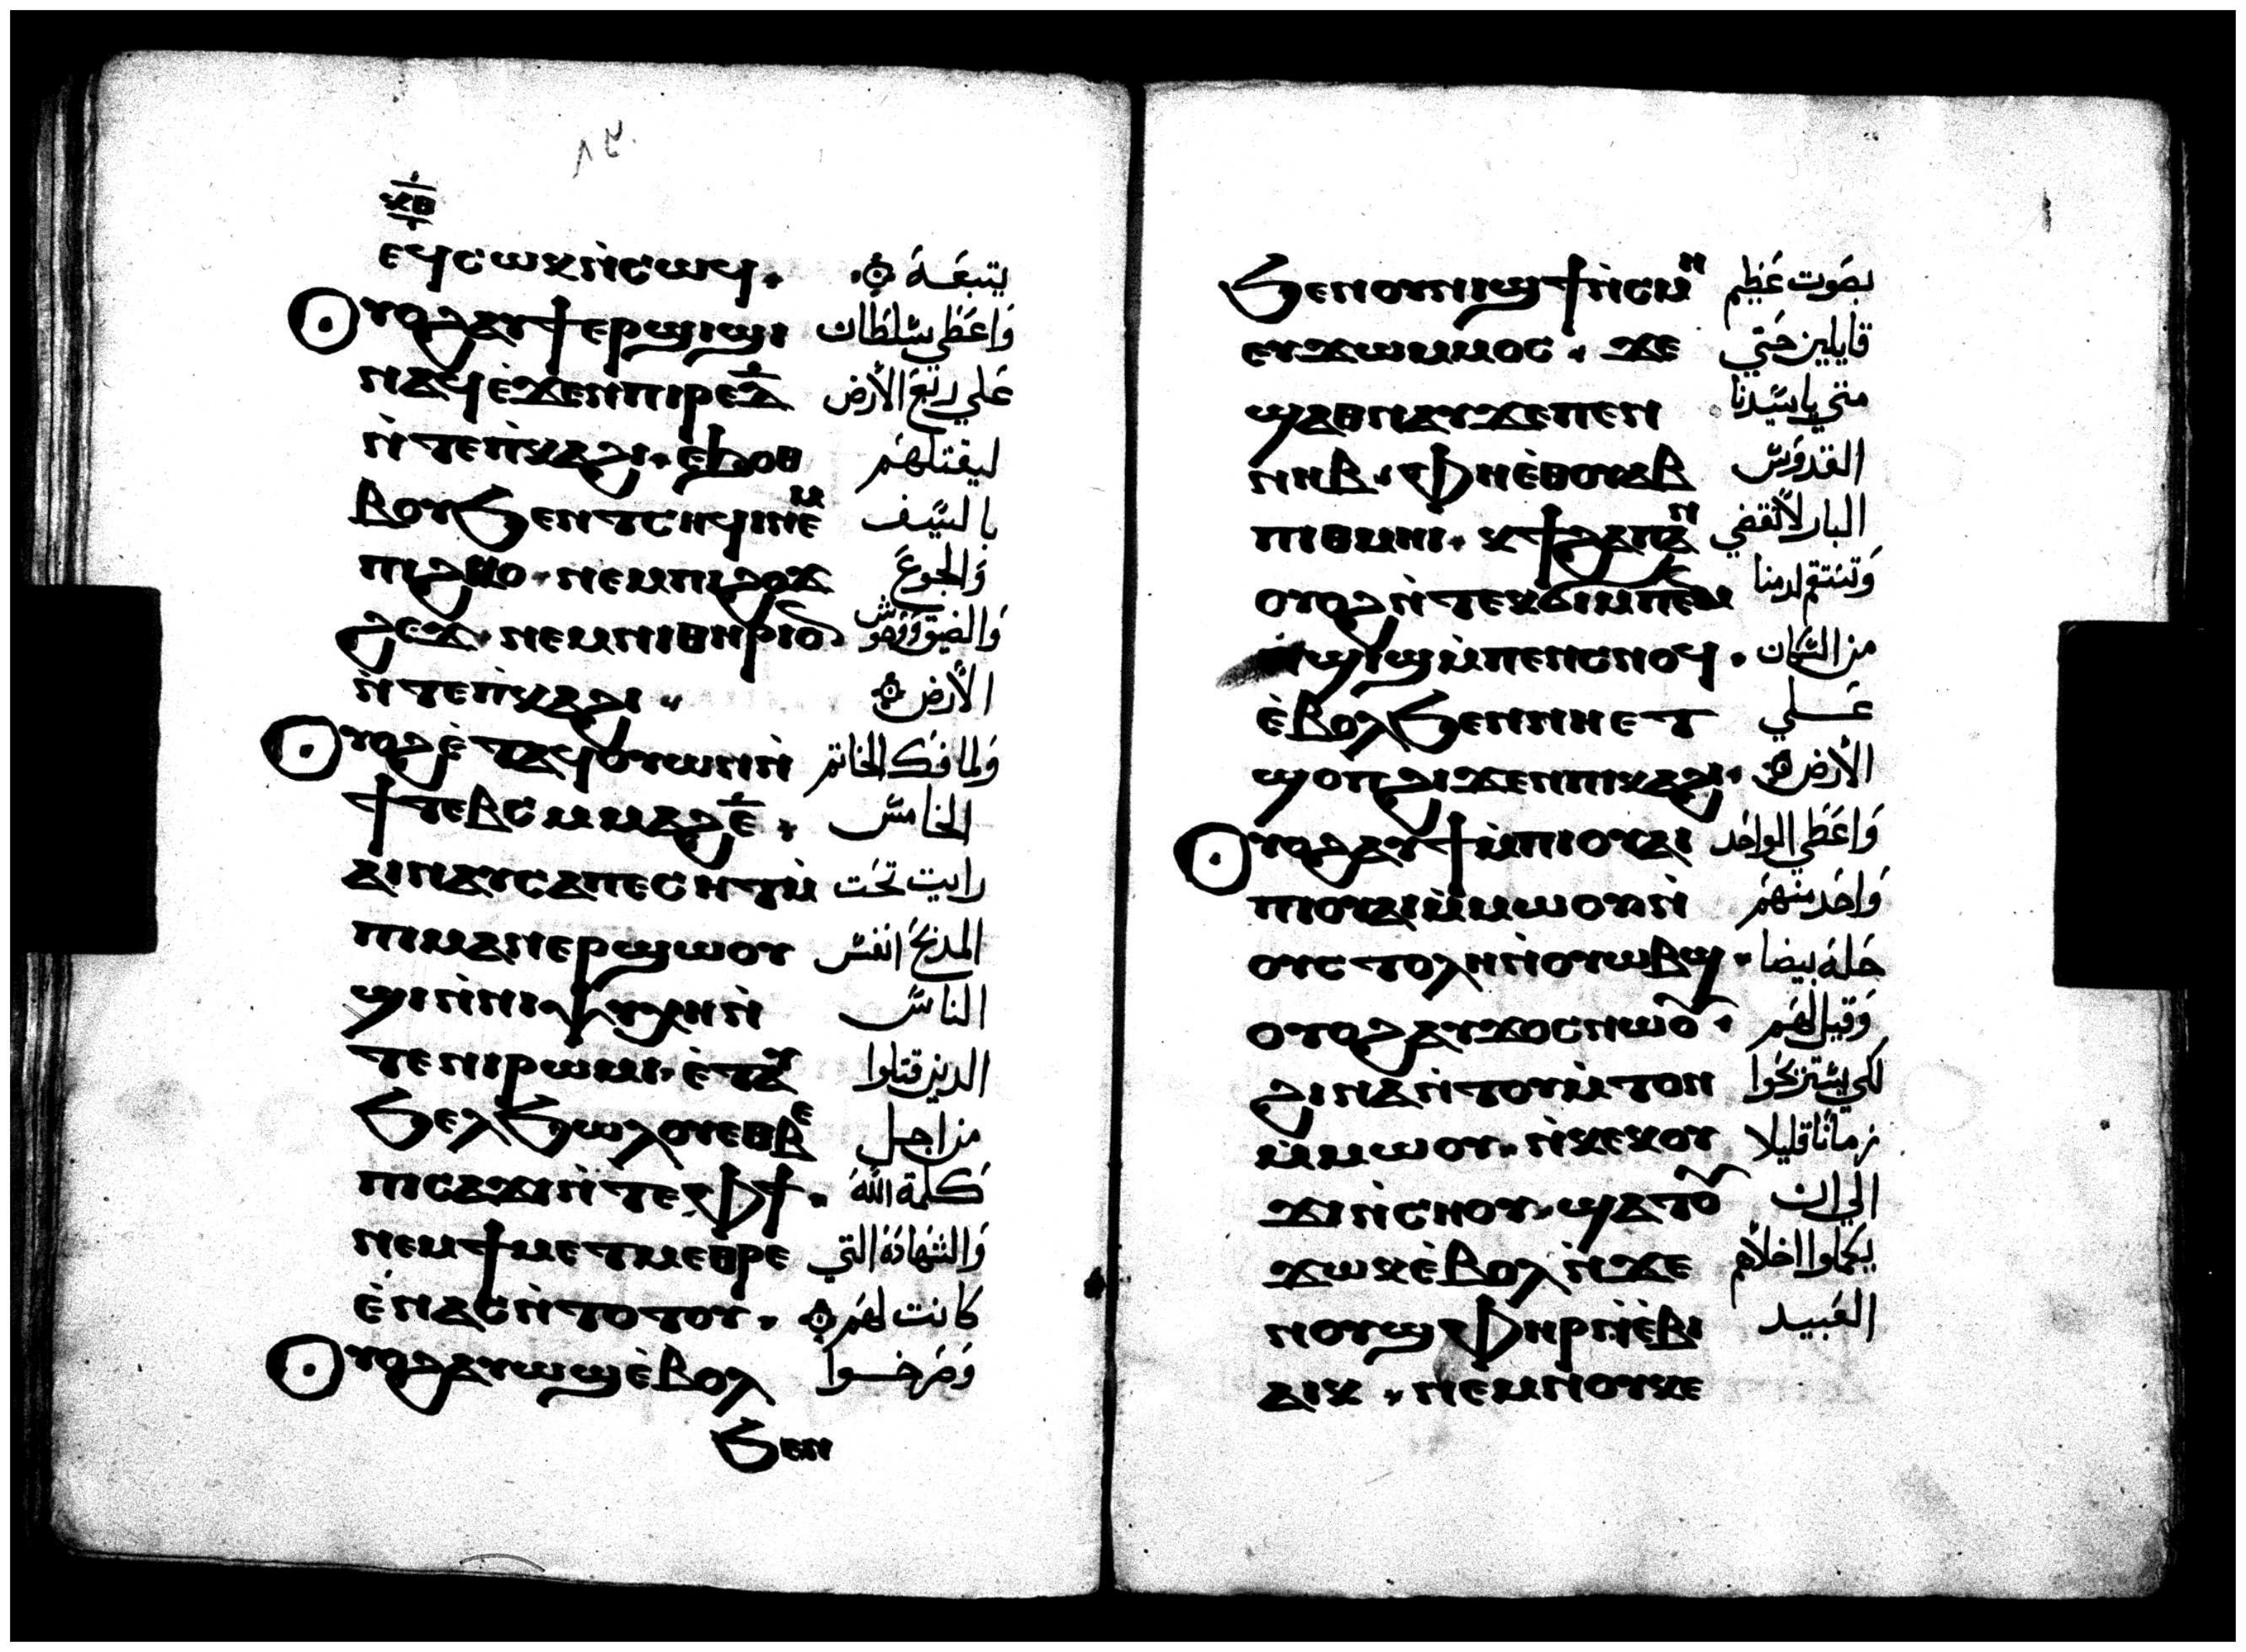 ٨٢
ⲕⲃ
ⲉϥⲥⲱⲕⲛ̀ⲥⲱϥ. يتبعه
ⲟⲩⲟϩⲁⲩϯⲉⲣϣⲓϣⲓ واعطي سلطان
ⲛⲁϥⲉ̀ϫⲉⲛⲡⲓⲣⲉⲇ̅ علي ربع الأرض
ⲛ̀ⲧⲉⲡ̀ⲕⲁϩⲓ. ⲉϧⲟⲑ ليقتلهم
ⲃⲟⲩϧⲉⲛⲧⲥⲏϥⲓⲛⲉⲙ بالسيف
ⲡⲓϩⲕⲟ. ⲛⲉⲙⲡⲓϩⲟϫ والجوع
ϩⲉϫ. ⲛⲉⲙⲛⲓⲑⲏⲣⲓⲟⲛ والضيق ووحوش
ⲛ̀ⲧⲉⲡ̀ⲕⲁϩⲓ. الأرض
ⲟⲩⲟϩⲉ̀ⲧⲁϥⲟⲩⲱⲛⲛ̀ ولما فك الخاتم
ϯⲧⲉⲃⲥⲙⲙⲁϩⲉ̅. الخامس
ⲁⲓⲛⲁⲩⲥⲁⲡⲉⲥⲏⲧⲙ̀ رايت تحت
ⲡⲓⲙⲁⲛⲉⲣϣⲱⲟⲩ المذبح انفس
ϣⲓⲛ̀ⲛⲓⲯⲩⲭⲏⲛ̀ الناس
ⲧⲉⲛⲓⲣⲱⲙⲓ. ⲉ̀ⲧⲁⲩ الدين قتلوا
ϧⲉⲗϧⲱⲗⲟⲩⲉⲑⲃⲉ من اجل
ⲡⲓⲥⲁϫⲓⲛ̀ⲧⲉⲫϯ. كلمة الله
ⲛⲉⲙϯⲙⲉⲧⲙⲉⲑⲣⲉ والشهادة التي
ⲉ̀ⲛⲁⲥⲛ̀ⲧⲟⲧⲟⲩ. كانت لهم
ⲟⲩⲟϩⲁⲩⲱϣⲉ̀ⲃⲟⲗ وصرخوا
ϧⲉⲛ
ϧⲉⲛⲟⲩⲛⲓϣϯⲛ̀ⲥⲙⲏ بصوت عظيم
ⲉⲩϫⲱⲙⲙⲟⲥ. ϫⲉ قايلين حتي
ϣⲁⲑⲛⲁⲩϫⲉⲡⲉⲛ متي يا سيدنا
ⲛⲏⲃ. ⲫⲏⲉ̀ⲑⲟⲩⲁⲃ القدوس
ⲡⲓⲑⲙⲏⲓ. ⲕϯϩⲁⲡⲁⲛ البار لا تقضي
ⲟⲩⲟϩⲛ̀ⲧⲉⲕϭⲓⲙⲡⲉⲙ وتنتقم لدمنا
ⲛ̀ϣⲓϣⲙ̀ⲡⲉⲛⲥⲛⲟϥ. من السكان
ⲉ̀ⲃⲟⲗϧⲉⲛⲛⲏⲉⲧ علي
ϣⲟⲡϩⲓϫⲉⲛⲡⲓⲕⲁϩⲓ. الأرض
ⲟⲩⲟϩⲁⲩϯⲙ̀ⲡⲓⲟⲩⲁⲓ واعطي الواحد
ⲡⲓⲟⲩⲁⲓⲙ̀ⲙⲱⲟⲩⲛ̀ واحد منهم
ⲟⲩⲥⲧⲟⲗⲏⲛ̀ⲟⲩⲱⲃϣ. حلة بيضا
ⲟⲩⲟϩⲁⲩϫⲟⲥⲛⲱⲟⲩ. وقيل لهم
ϩⲓⲛⲁⲛ̀ⲧⲟⲩⲙ̀ⲧⲟⲛ لكي يستريحوا
ⲙ̀ⲙⲱⲟⲩ. ⲛ̀ⲕⲉⲕⲟⲩ زمانا قليلا
ϫⲓⲛ̀ⲥⲏⲟⲩ. ϣⲁⲧⲟⲩ الي ان
ϫⲱⲕⲉ̀ⲃⲟⲗⲛ̀ϫⲉ يكملوا اخلاهم
ⲛⲟⲩϣⲫⲏⲣⲛ̀ⲉ̀ⲃⲓ العبيد
ⲁⲓⲕ. ⲛⲉⲙⲛⲟⲩⲕⲉ